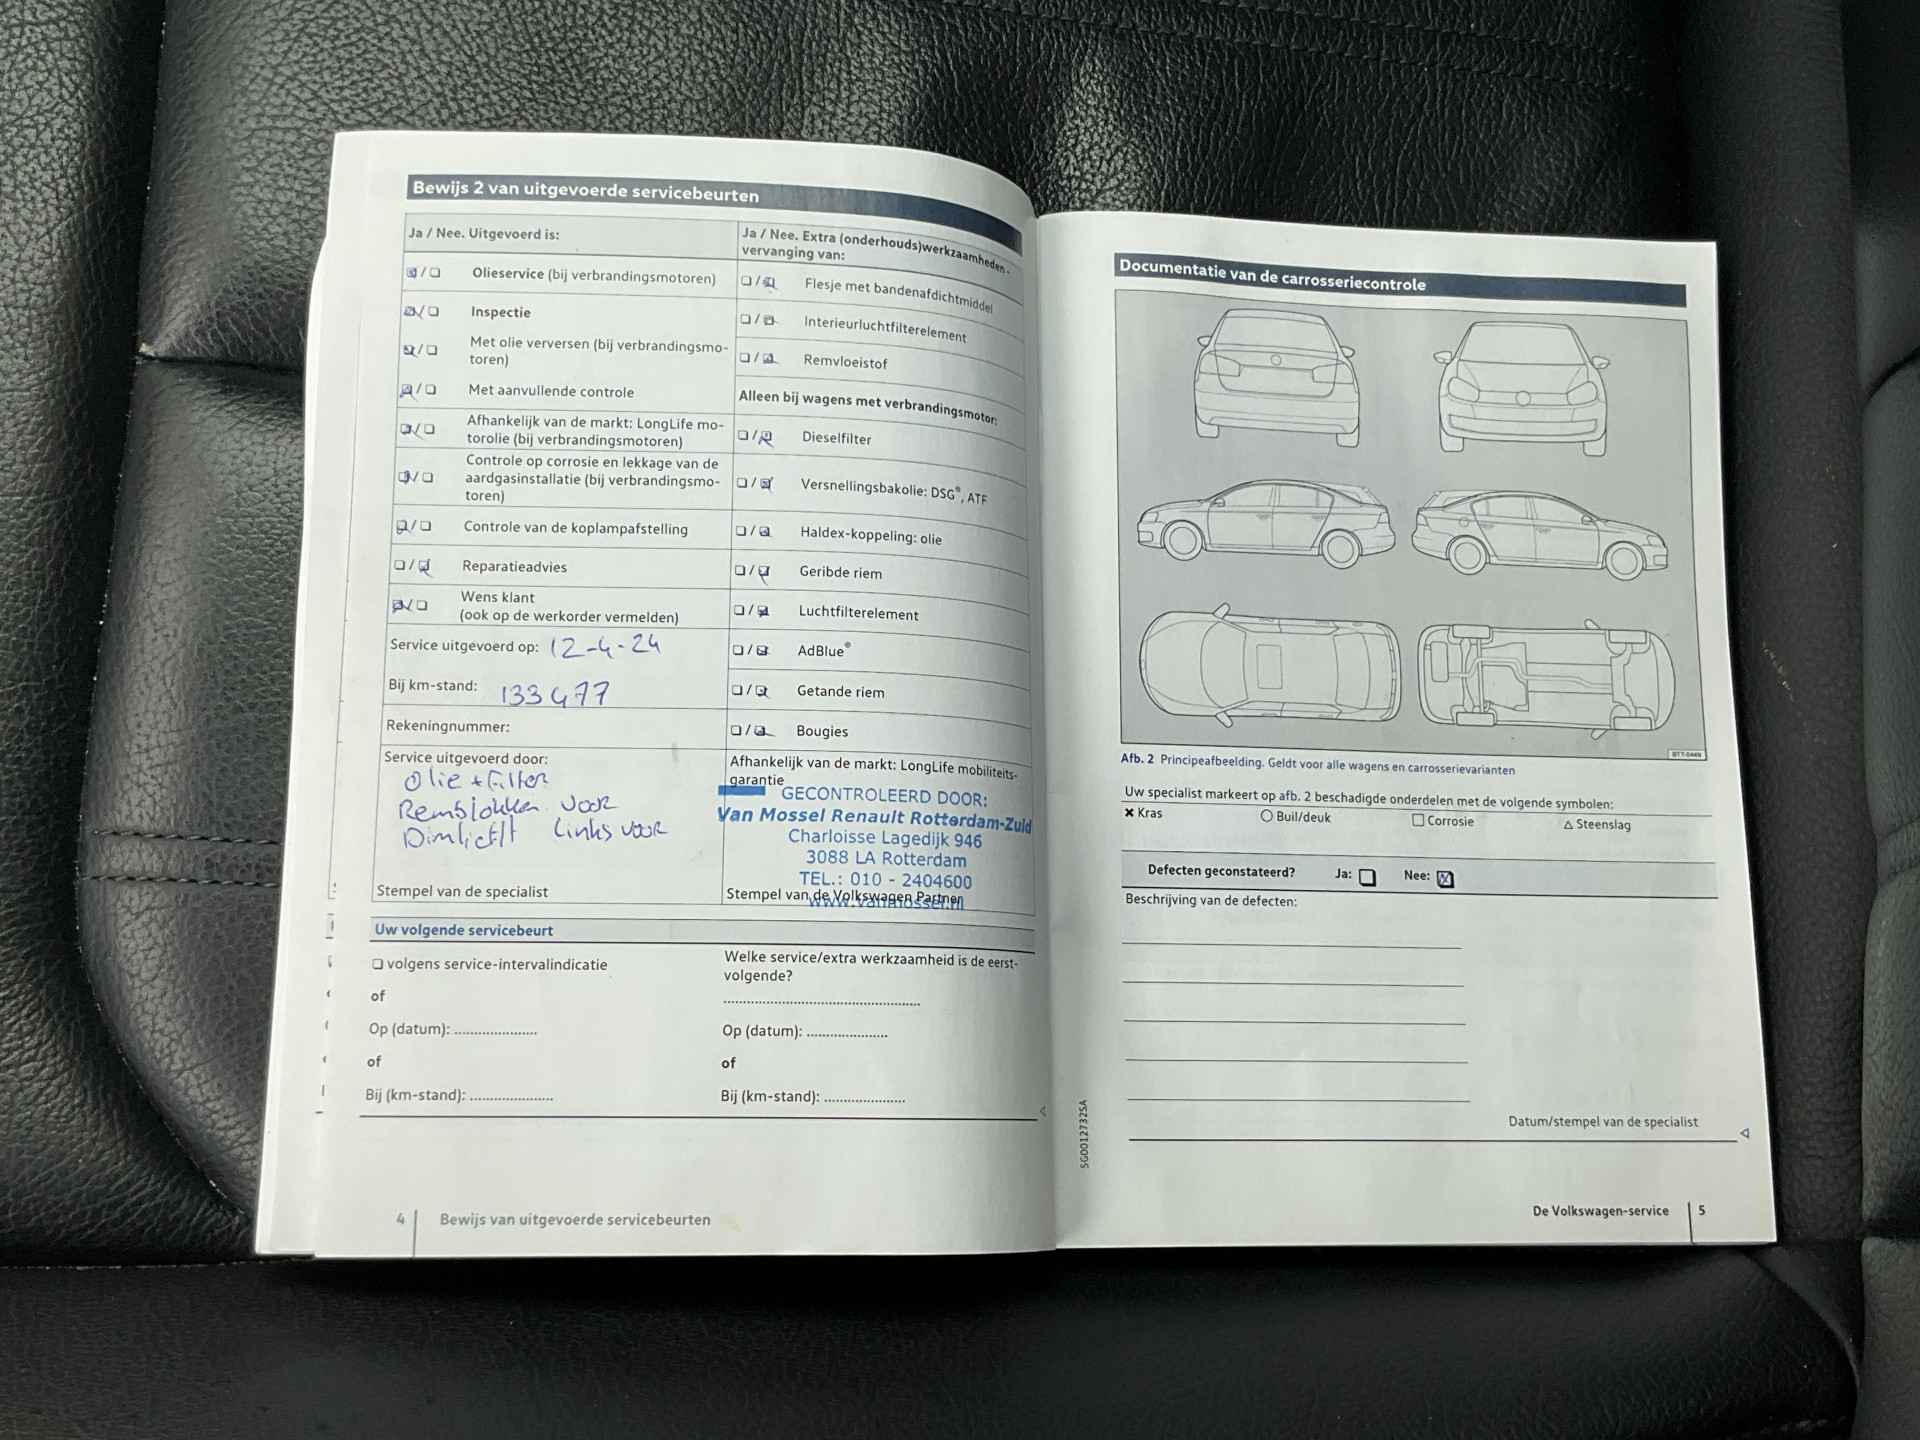 Bewijs 2 van uitgevoerde servicebeurten
Ja / Nee. Uitgevoerd is:
☒ / ☐ Olieservice (bij verbrandingsmotoren)
☒ / ☐ Inspectie
☒ / ☐ Met olie verversen (bij verbrandingsmo-
toren)
☒ / ☐ Met aanvullende controle
☒ / ☐ Afhankelijk van de markt: LongLife mo-
torolie (bij verbrandingsmotoren)
☒ / ☐ Controle op corrosie en lekkage van de
aardgasinstallatie (bij verbrandingsmo-
toren)
☒ / ☐ Controle van de koplampafstelling
☐ / ☒ Reparatieadvies
☒ / ☐ Wens klant
(ook op de werkorder vermelden)
Service uitgevoerd op: 12-4-24
Bij km-stand: 133477
Rekeningnummer:
Service uitgevoerd door:
Olie + Filter
Remblokken voor
Dimlicht links voor
Stempel van de specialist
Ja / Nee. Extra (onderhouds)werkzaamheden -
vervanging van:
☐ / ☒ Flesje met bandenafdichtmiddel
☐ / ☒ Interieurluchtfilterelement
☐ / ☒ Remvloeistof
Alleen bij wagens met verbrandingsmotor:
☐ / ☒ Dieselfilter
☐ / ☒ Versnellingsbakolie: DSG®, ATF
☐ / ☒ Haldex-koppeling: olie
☐ / ☒ Geribde riem
☐ / ☒ Luchtfilterelement
☐ / ☒ AdBlue®
☐ / ☒ Getande riem
☐ / ☒ Bougies
Afhankelijk van de markt: LongLife mobiliteits-
garantie
GECONTROLEERD DOOR:
Van Mossel Renault Rotterdam-Zuid
Charloisse Lagedijk 946
3088 LA Rotterdam
TEL.: 010 - 2404600
www.vanmossel.nl
Stempel van de Volkswagen Partner
Uw volgende servicebeurt
☐ volgens service-intervalindicatie
of
Op (datum): .....................
of
Bij (km-stand): .....................
Welke service/extra werkzaamheid is de eerst-
volgende?
..................................................
Op (datum): .....................
of
Bij (km-stand): .....................
4 Bewijs van uitgevoerde servicebeurten
5G0012732SA
Documentatie van de carrosseriecontrole
BTT-0449
Afb. 2 Principeafbeelding. Geldt voor alle wagens en carrosserievarianten
Uw specialist markeert op afb. 2 beschadigde onderdelen met de volgende symbolen:
✖ Kras ○ Buil/deuk ☐ Corrosie △ Steenslag
Defecten geconstateerd? Ja: ☐ Nee: ☒
Beschrijving van de defecten:
Datum/stempel van de specialist
De Volkswagen-service 5